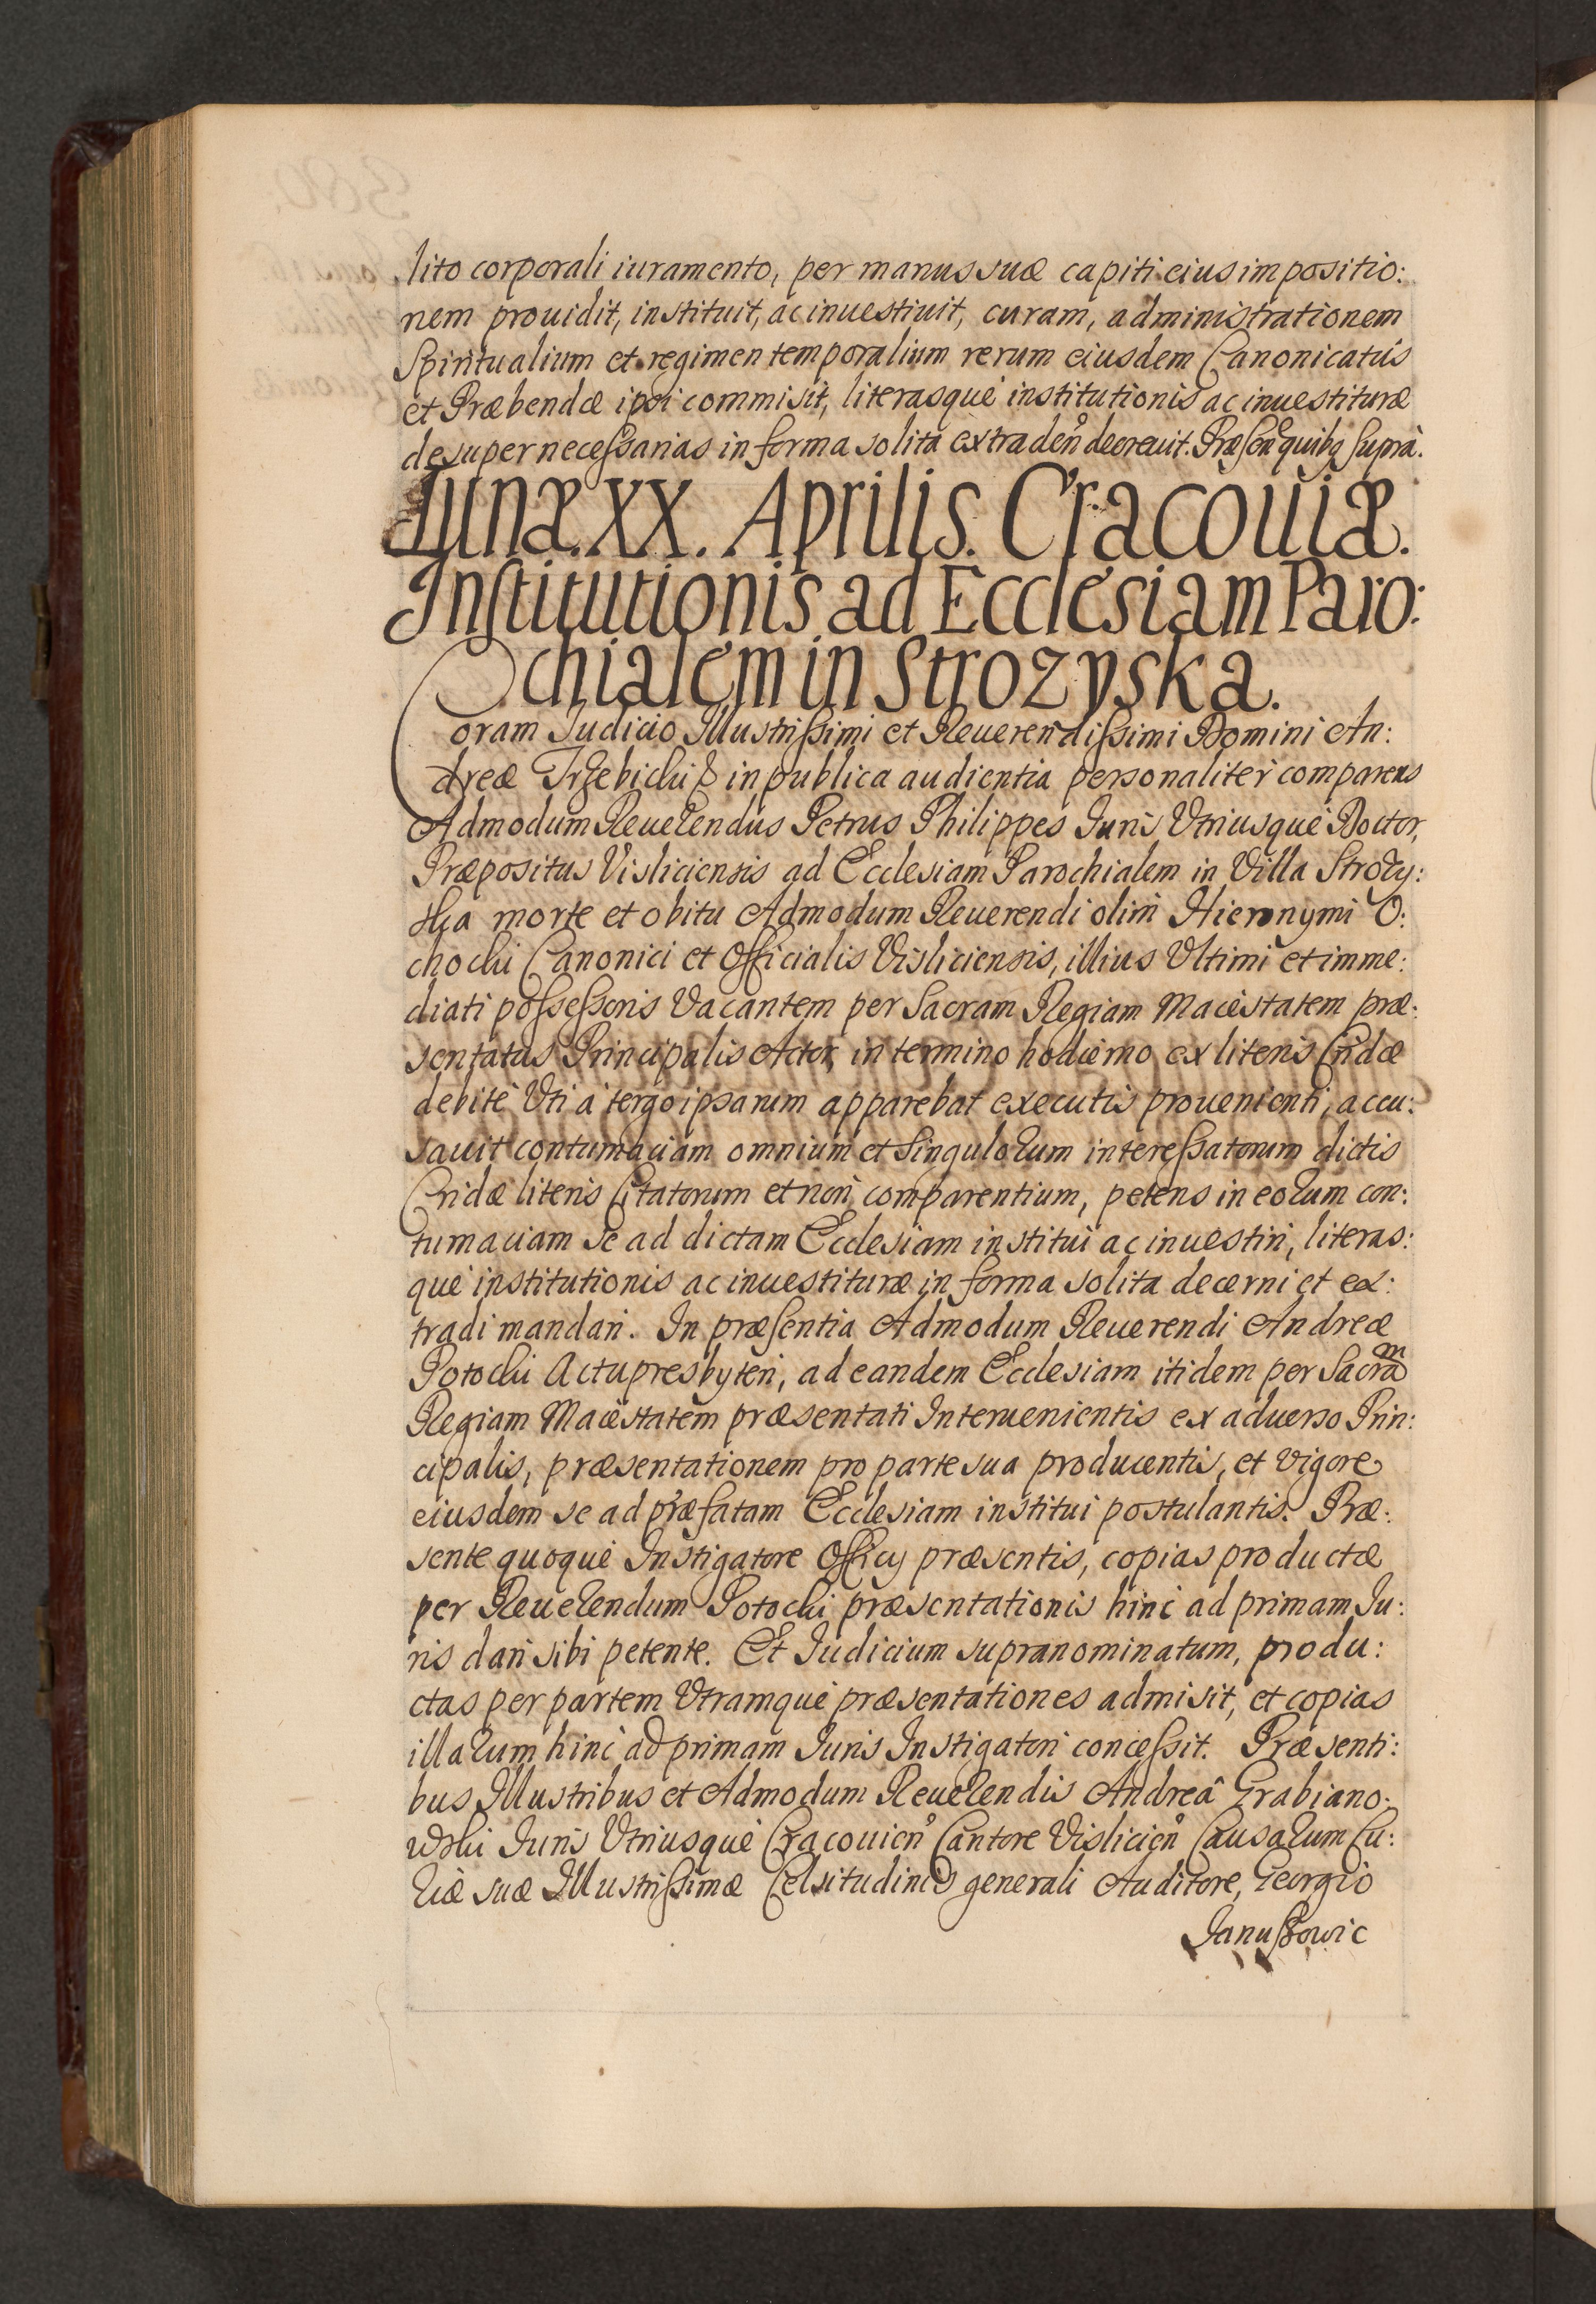 lito corporali iuramento, per manus suæ capiti eius impositio:
nem prouidit, instituit, ac inuestiuit, curam, administrationem
Spiritualium et regimen temporalium rerum eiusdem Canonicatûs
et Præbendæ ipsi commisit, literasquè institutionis ac inuestituræ
desuper necessarias in forma solita extraden̊ decreuit. Præsen̊ quibꝫ suprà.
Lunæ. XX. Aprilis. Cracouiæ.
Institutionis ad Ecclesiam Paro:
chialem in Strozyska.
Coram Iudicio Illustrissimi et Reuerendissimi Domini An:
dreæ Trzebicki & in publica audientia personaliter comparens
Admodum Reuerendus Petrus Philippes Iuris Vtriusquè Doctor,
Præpositus Visliciensis ad Ecclesiam Parochialem in Villa Strozy:
ska morte et obitu Admodum Reuerendi olim Hieronymi O:
chocki Canonici et Officialis Visliciensis, illius Vltimi et imme:
diati possessoris Vacantem per Sacram Regiam Maiestatem præ:
sentatus Principalis Actor, in termino hodierno ex literis Cridæ
debitè Vti à tergo ipsarum apparebat executis prouenienti, accu:
sauit contumaciam omnium et Singulorum interessatorum dictis
Cridæ literis Citatorum et non comparentium, petens in eorum con:
tumaciam se ad dictam Ecclesiam institui ac inuestiri, literas:
què institutionis ac inuestituræ in forma solita decerni et ex:
tradi mandari. In præsentia Admodum Reuerendi Andreæ
Potocki Actu presbyteri, ad eandem Ecclesiam itidem per Sacram
Regiam Maiestatem præsentati Interuenientis ex aduerso Prin:
cipalis, præsentationem pro parte sua producentis, et vigore
eiusdem se ad præfatam Ecclesiam institui postulantis. Præ:
sente quoquè Instigatore Officij præsentis, copias productæ
per Reuerendum Potocki præsentationis hinc ad primam Iu:
ris dari sibi petente. Et Iudicium supranominatum, produ:
ctas per partem Vtramquè præsentationes admisit, et copias
illarum hinc ad primam Iuris Instigatori concessit. Præsenti:
bus Illustribus et Admodum Reuerendis Andreâ Grabiano:
wski Iuris Vtriusquè Cracouien̊ Cantore Vislicien̊ Causarum Cu:
riæ suæ Illustrissimæ Celsitudinis generali Auditore, Georgio
Januszowic